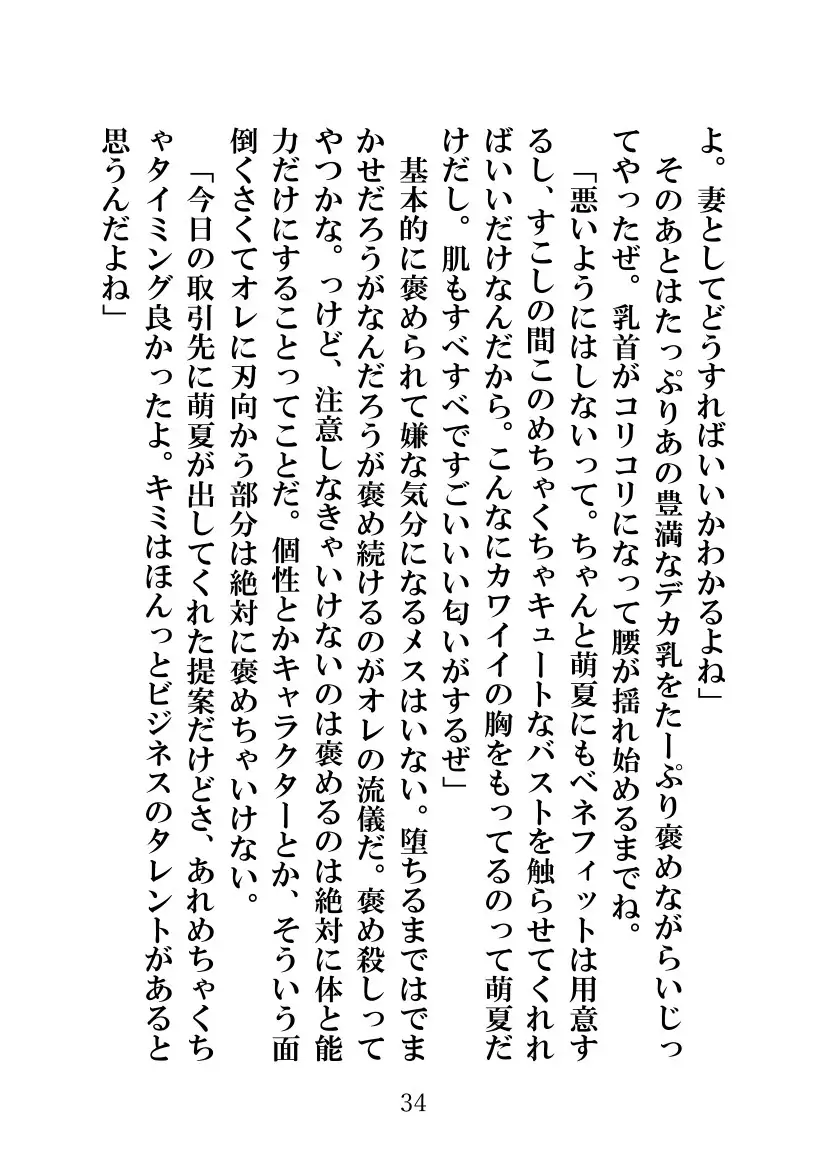 よ。妻としてどうすればいいかわかるよね」
　そのあとはたっぷりあの豊満なデカ乳をたーぷり褒めながらいじっ
てやったぜ。乳首がコリコリになって腰が揺れ始めるまでね。
「悪いようにはしないって。ちゃんと萌夏にもベネフィットは用意す
るし、すこしの間このめちゃくちゃキュートなバストを触らせてくれれ
ばいいだけなんだから。こんなにカワイイの胸をもってるのって萌夏だ
けだし。肌もすべすべですごいいい匂いがするぜ」
　基本的に褒められて嫌な気分になるメスはいない。堕ちるまではでま
かせだろうがなんだろうが褒め続けるのがオレの流儀だ。褒め殺しって
やつかな。っけど、注意しなきゃいけないのは褒めるのは絶対に体と能
力だけにすることってことだ。個性とかキャラクターとか、そういう面
倒くさくてオレに刃向かう部分は絶対に褒めちゃいけない。
「今日の取引先に萌夏が出してくれた提案だけどさ、あれめちゃくち
ゃタイミング良かったよ。キミはほんっとビジネスのタレントがあると
思うんだよね」
34